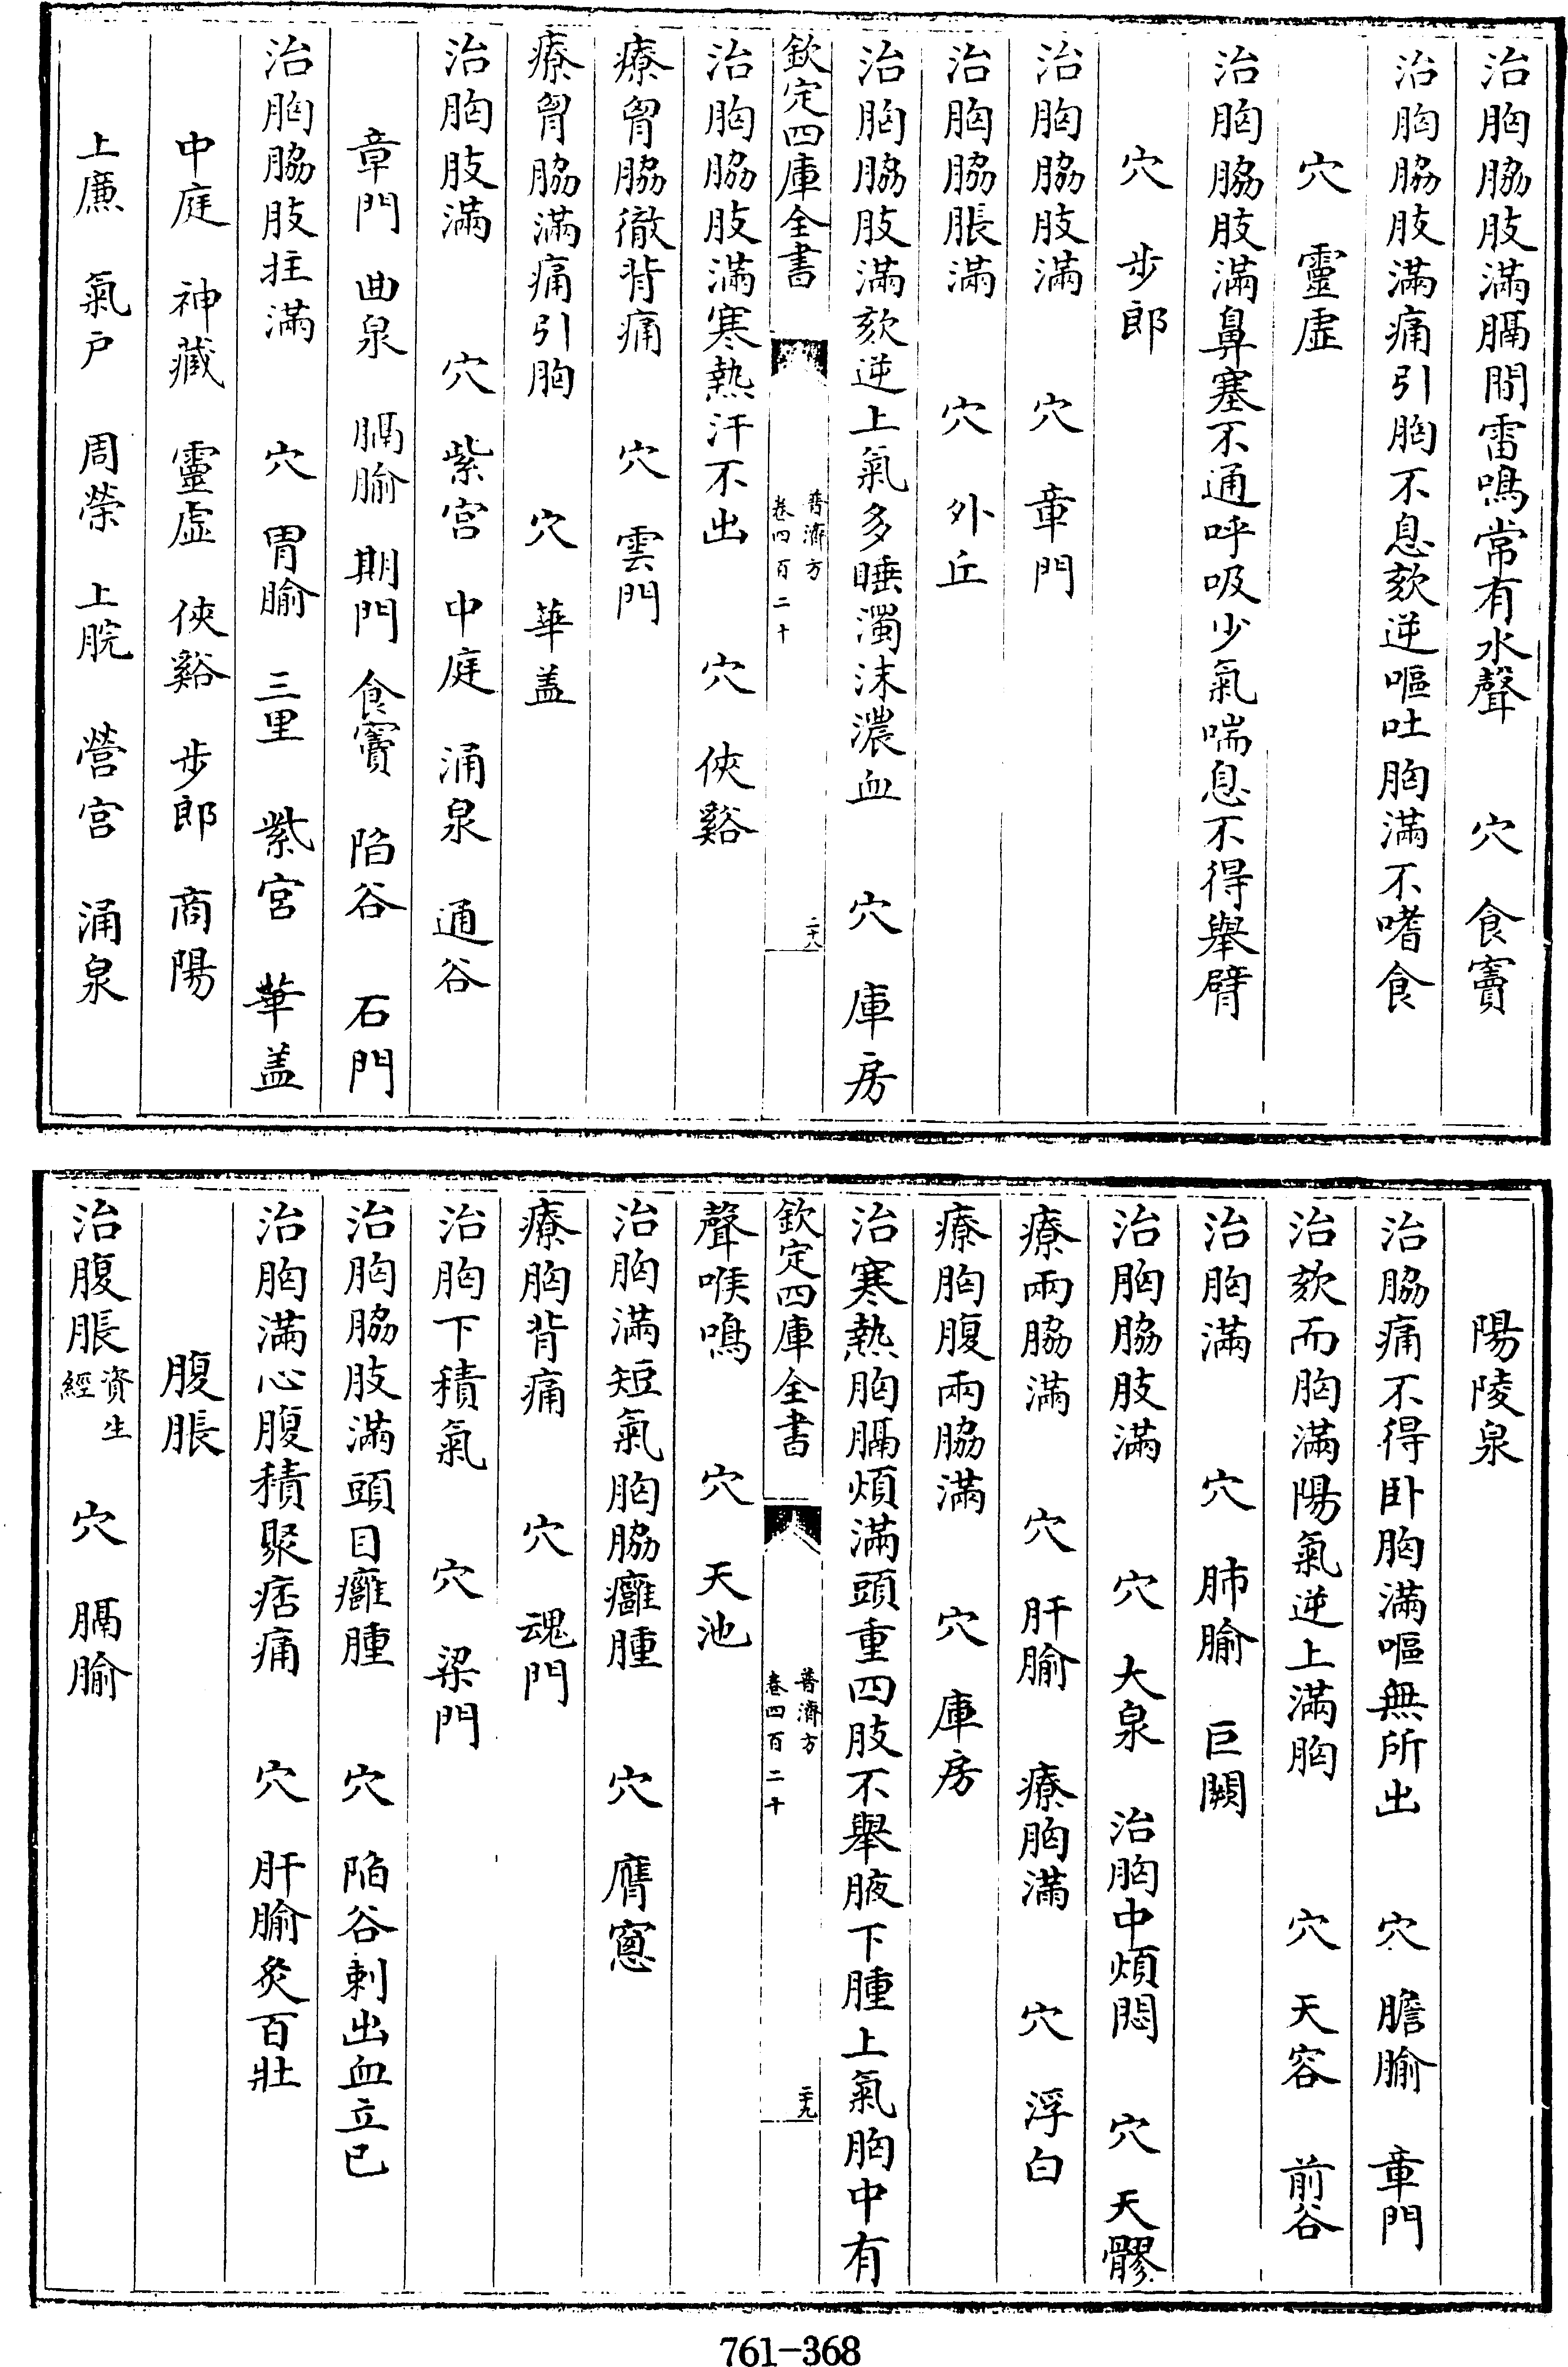 治胸脇肢滿膈間雷鳴常有水聲　穴　食竇
治胸脇肢滿痛引胸不息欬逆嘔吐胸滿不嗜食
穴　靈虛
治胸脇肢滿鼻塞不通呼吸少氣喘息不得舉臂
穴　步郎
治胸脇肢滿　穴　章門
治胸脇脹滿　穴　外丘
治胸脇肢滿欬逆上氣多唾濁沫濃血　穴　庫房
欽定四庫全書　普濟方　卷四百二十　二十八
治胸脇肢滿寒熱汗不出　穴　俠谿
療胷脇徹背痛　穴　雲門
療胷脇滿痛引胸　穴　華盖
治胸肢滿　穴　紫宫　中庭　涌泉　通谷
章門　曲泉　膈腧　期門　食竇　陷谷　石門
治胸脇肢拄滿　穴　胃腧　三里　紫宮　華盖
中庭　神藏　靈虛　俠谿　步郎　商陽
上廉　氣戶　周榮　上脘　營宫　涌泉
陽陵泉
治脇痛不得卧胸滿嘔無所出　穴　膽腧　章門
治欬而胸滿陽氣逆上滿胸　穴　天容　前谷
治胸滿　穴　肺腧　巨闕
治胸脇肢滿　穴　大泉　治胸中煩悶　穴　天髎
療兩脇滿　穴　肝腧　療胸滿　穴　浮白
療胸腹兩脇滿　穴　庫房
治寒熱胸膈煩滿頭重四肢不舉腋下腫上氣胸中有
欽定四庫全書　普濟方　卷四百二十　二十九
聲喉鳴　穴　天池
治胸滿短氣胸脇癰腫　穴　膺窻
療胸背痛　穴　魂門
治胸下積氣　穴　梁門
治胸脇肢滿頭目癰腫　穴　陷谷刺出血立已
治胸滿心腹積聚痞痛　穴　肝腧灸百壯
腹脹
治腹脹資生經　穴　膈腧
761-368